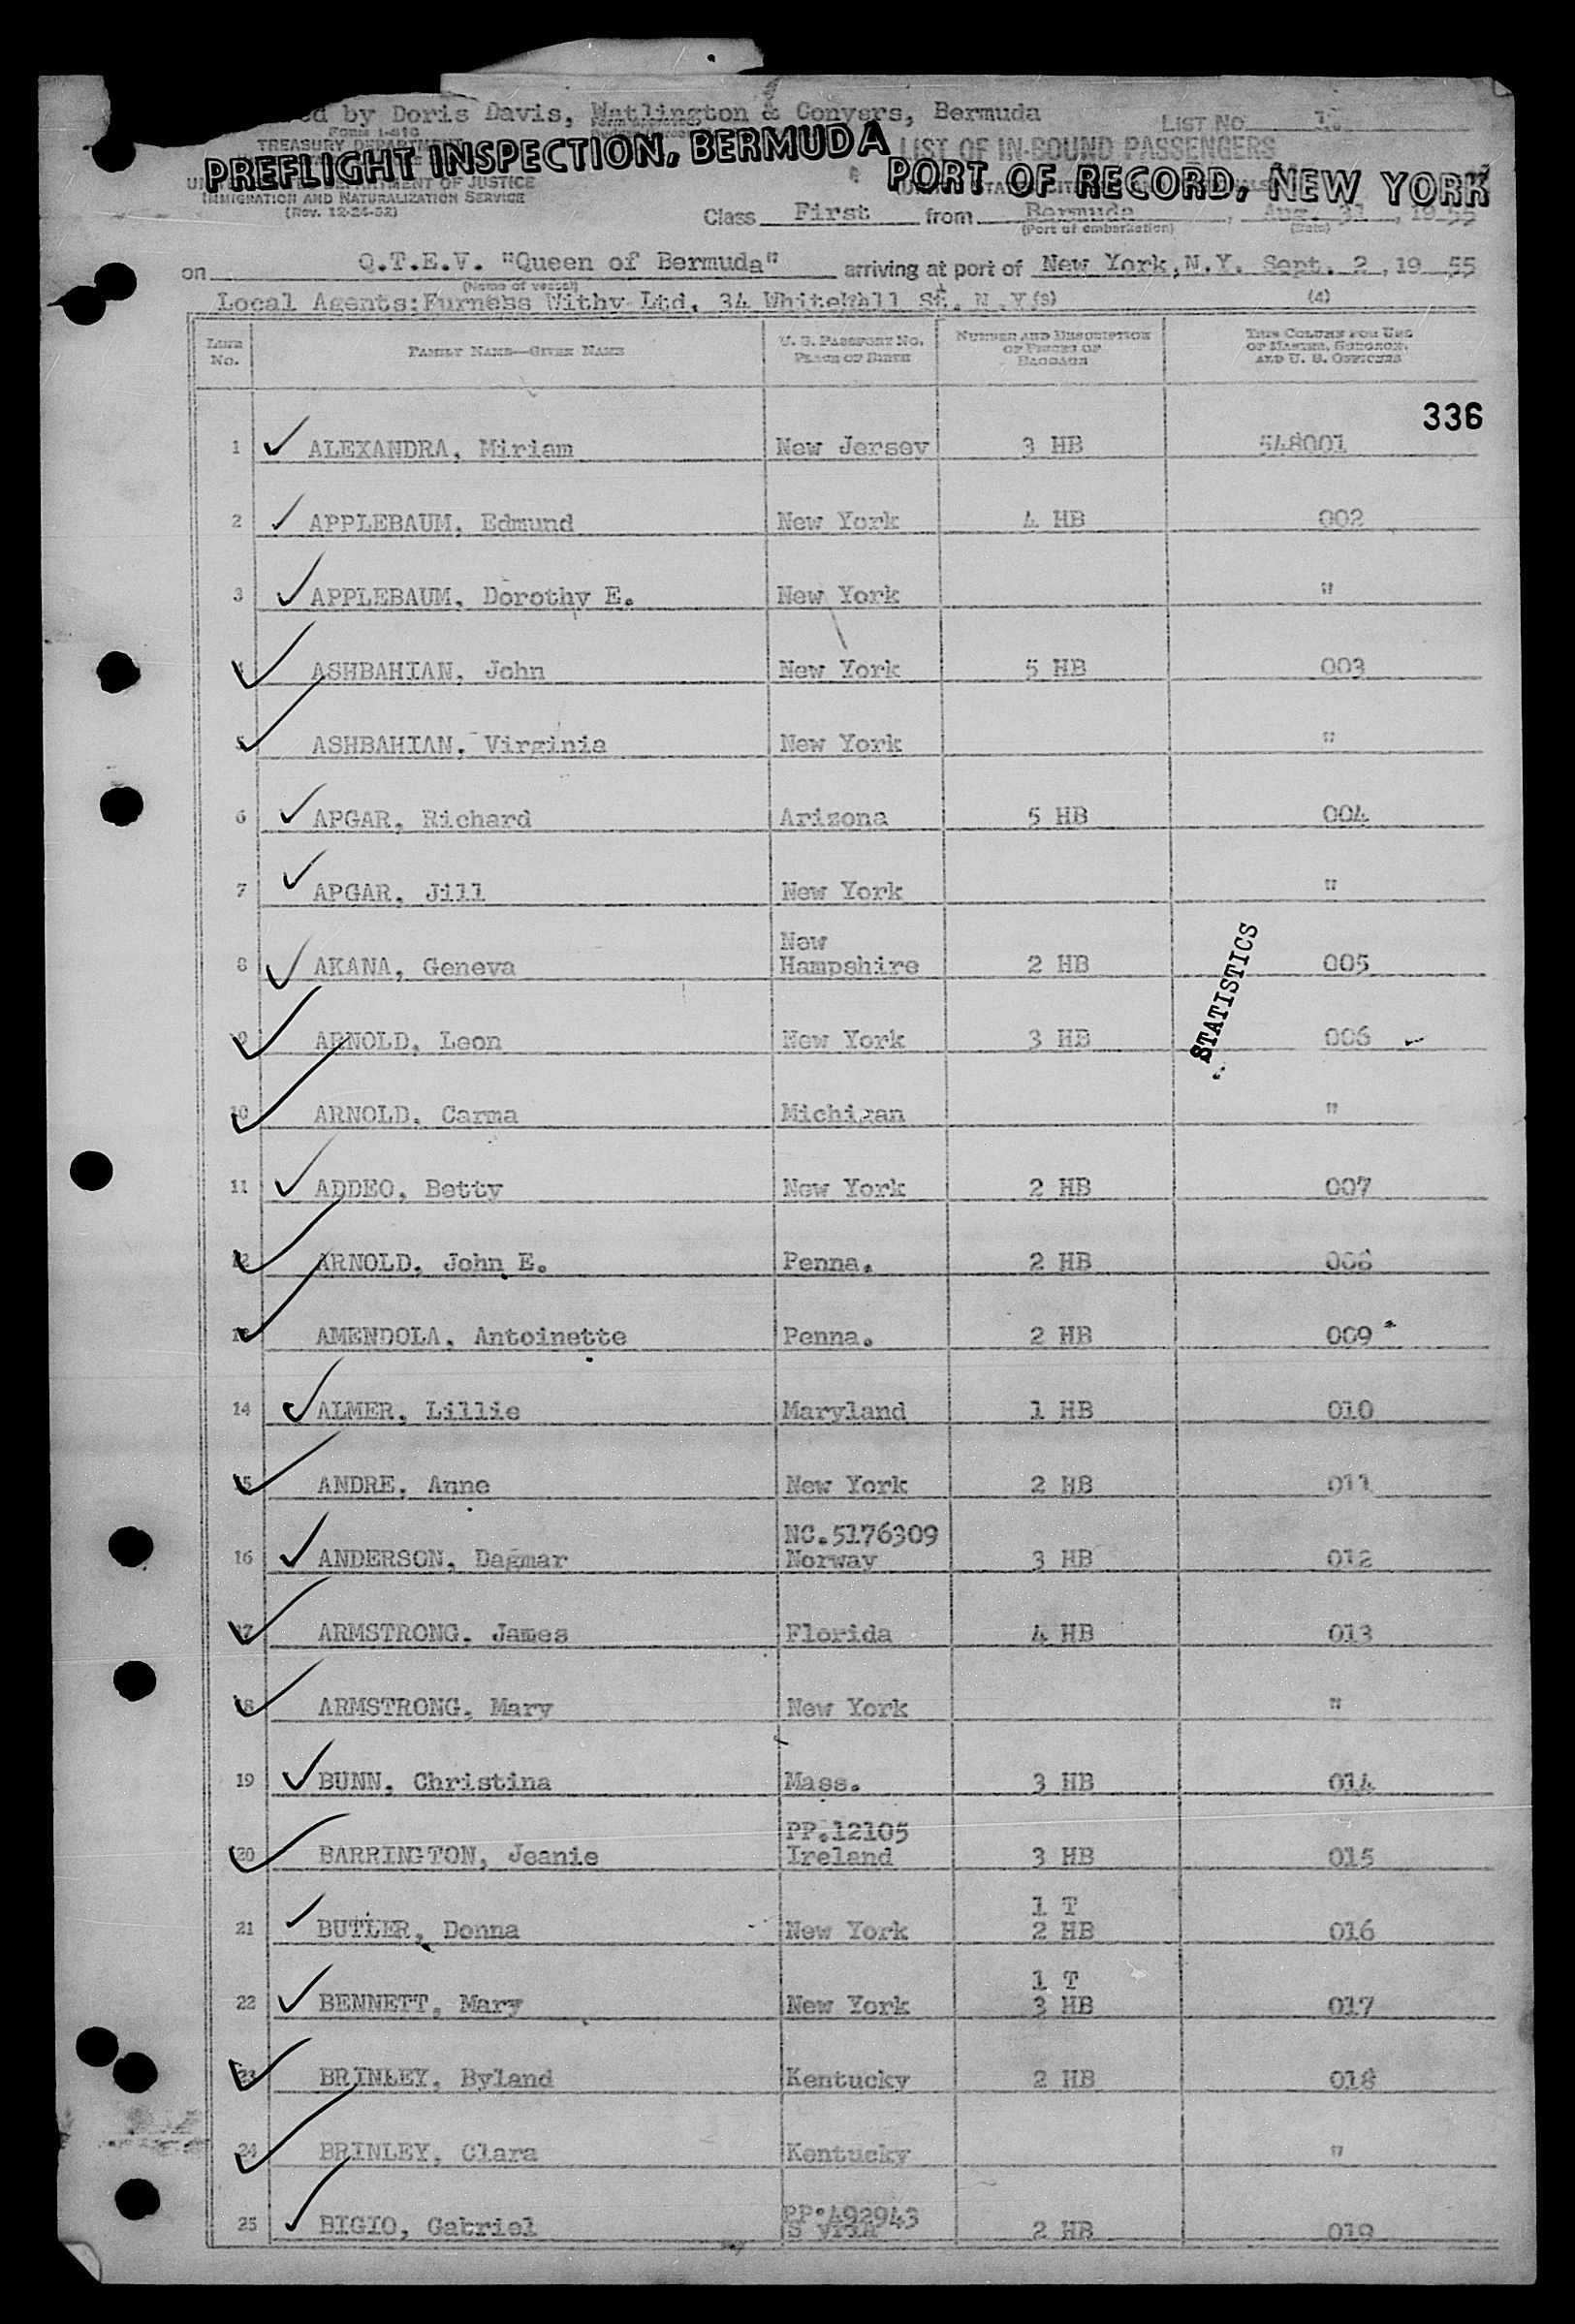 ed by Doris Davis, Watlington & Conyers, Bermuda
LIST No. 1
FORM I-416
TREASURY DEPARTMENT
LIST OF IN-BOUND PASSENGERS
PREFLIGHT INSPECTION, BERMUDA
PORT OF RECORD, NEW YORK
DEPARTMENT OF JUSTICE
IMMIGRATION AND NATURALIZATION SERVICE
(Rev. 12-24-52)
Class First from Bermuda, Aug. 31, 1955
(Port of embarkation) (Date)
on Q.T.E.V. "Queen of Bermuda" arriving at port of New York, N.Y. Sept. 2, 1955
(Name of vessel)
Local Agents: Furness Withy Ltd, 34 Whitehall St. N.Y. (3) (4)
LINE No. FAMILY NAME—GIVEN NAME U. S. PASSPORT NO. PLACE OF BIRTH NUMBER AND DESCRIPTION OF PIECES OF BAGGAGE THIS COLUMN FOR USE OF MASTER, SURGEON, AND U. S. OFFICERS
336
1 ALEXANDRA, Miriam New Jersey 3 HB 548001
2 APPLEBAUM, Edmund New York 4 HB 002
3 APPLEBAUM, Dorothy E. New York "
4 ASHBAHIAN, John New York 5 HB 003
5 ASHBAHIAN, Virginia New York "
6 APGAR, Richard Arizona 5 HB 004
7 APGAR, Jill New York "
New
8 AKANA, Geneva Hampshire 2 HB 005
STATISTICS
9 ARNOLD, Leon New York 3 HB 006
10 ARNOLD, Carma Michigan "
11 ADDEO, Betty New York 2 HB 007
12 ARNOLD, John E. Penna. 2 HB 008
13 AMENDOLA, Antoinette Penna. 2 HB 009
14 ALMER, Lillie Maryland 1 HB 010
15 ANDRE, Anne New York 2 HB 011
NC.5176309
16 ANDERSON, Dagmar Norway 3 HB 012
17 ARMSTRONG, James Florida 4 HB 013
18 ARMSTRONG, Mary New York "
19 BUNN, Christina Mass. 3 HB 014
PP.12105
20 BARRINGTON, Jeanie Ireland 3 HB 015
1 T
21 BUTLER, Donna New York 2 HB 016
1 T
22 BENNETT, Mary New York 3 HB 017
23 BRINLEY, Byland Kentucky 2 HB 018
24 BRINLEY, Clara Kentucky "
PP.492943
25 BIGIO, Gabriel Syria 2 HB 019